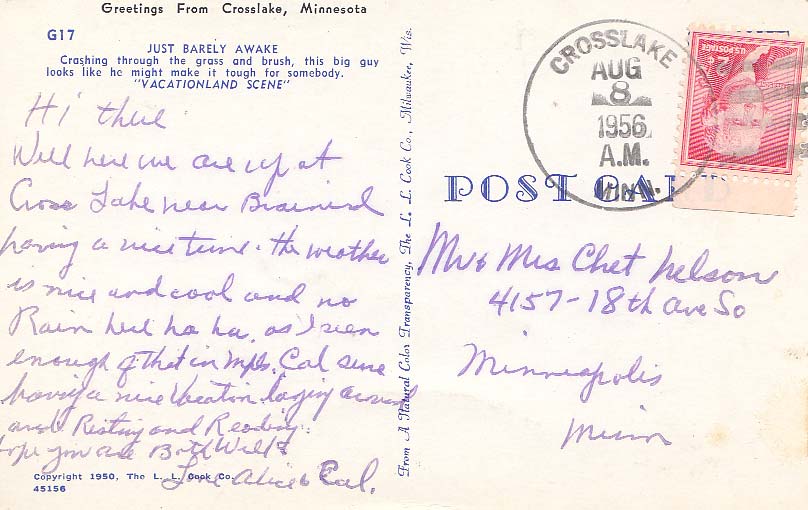 Greetings From Crosslake, Minnesota
G17
JUST BARELY AWAKE
Crashing through the grass and brush, this big guy
looks like he might make it tough for somebody.
"VACATIONLAND SCENE"
Hi there
Well here we are up at
Cross Lake near Brainerd
having a nice time. the weather
is nice and cool and no
Rain here ha ha, as I seen
enough of that in Mpls. Cal sure
having a nice Vacation. laying around
and Resting and Reading.
hope you are Both Well &
Love Alice & Cal.
Copyright 1950, The L. L. Cook Co.
45156
From A Natural Color Transparency, The L. L. Cook Co., Milwaukee, Wis.
CROSSLAKE
AUG
8
1956
A.M.
MINN.
U.S. POSTAGE
POST CARD
Mr & Mrs Chet Nelson
4157-18th Ave So
Minneapolis
Minn